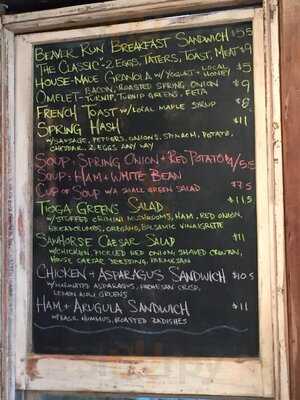 BEAVER RUN BREAKFAST SANDWICH $5.5
THE CLASSIC - 2 EGGS, TATERS, TOAST, MEAT $9
HOUSE-MADE GRANOLA W/ YOGURT + LOCAL HONEY $5
OMELET - BACON, ROASTED SPRING ONION, TURNIP, TURNIP GREENS, FETA $9
FRENCH TOAST W/ LOCAL MAPLE SYRUP $8
SPRING HASH $11
W/ SAUSAGE, PEPPERS, ONIONS, SPINACH, POTATO,
CHEDDAR, 2 EGGS ANY WAY
SOUP: SPRING ONION + RED POTATO
SOUP: HAM + WHITE BEAN
CUP OF SOUP W/ A SMALL GREEN SALAD $7.5
TIOGA GREENS SALAD $11.5
W/ STUFFED CRIMINI MUSHROOMS, HAM, RED ONION,
BREADCRUMBS, OREGANO, BALSAMIC VINAIGRETTE
SAWHORSE CAESAR SALAD $11
W/ CHICKEN, PICKLED RED ONION, SHAVED CROUTON,
HOUSE CAESAR DRESSING, PARMESAN
CHICKEN + ASPARAGUS SANDWICH $10.5
W/ MARINATED ASPARAGUS, PARMESAN CRISP,
LEMON AIOLI, GREENS
HAM + ARUGULA SANDWICH $11
W/ BASIL HUMMUS, ROASTED RADISHES